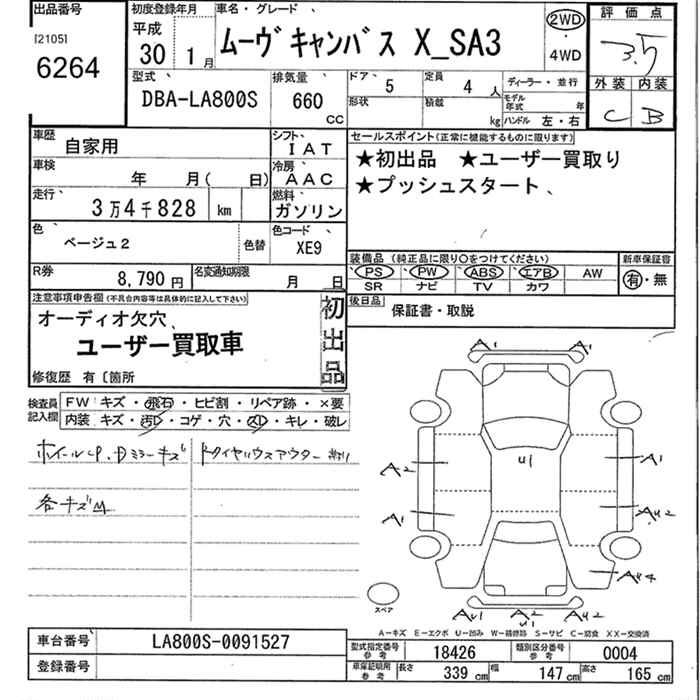 出品番号
[2105]
6264
初度登録年月
平成
30 1月
車名・グレード
ムーヴキャンバス X_SA3
2WD
・
4WD
評価点
3.5
外装 内装
C B
型式
DBA-LA800S
排気量
660
CC
ドア 5
形状
定員 4 人
積載 kg
ディーラー・並行
モデル年式 年
ハンドル 左・右
車歴 自家用
シフト IAT
車検 年 月( 日)
冷房 AAC
走行 3万4千828 km
燃料 ガソリン
色 ベージュ2
色替
色コード XE9
R券 8,790円
名変通知期限 月 日
セールスポイント(正常に機能するものに限ります)
★初出品 ★ユーザー買取り
★プッシュスタート、
装備品(純正品に限り○をつけてください)
PS PW ABS エアB AW
SR ナビ TV カワ
新車保証書
有・無
後日品
保証書・取説
注意事項申告欄(不具合内容等は具体的に記入して下さい)
オーディオ欠穴、
ユーザー買取車
修復歴 有〔箇所
初出品
検査員記入欄
FW キズ・飛石・ヒビ割・リペア跡・×要
内装 キズ・汚レ・コゲ・穴・スレ・キレ・破レ
各キズ
A1 A1
A2 U1 A1
A1 AU2
AU4
スペア
AU1 A2 AU2
U1
A-キズ E-エクボ U-凹み W-補修跡 S-サビ C-腐食 XX-交換済
車台番号 LA800S-0091527
登録番号
型式指定番号参考 18426
類別区分番号参考 0004
車庫証明用参考 長さ 339cm 幅 147cm 高さ 165cm